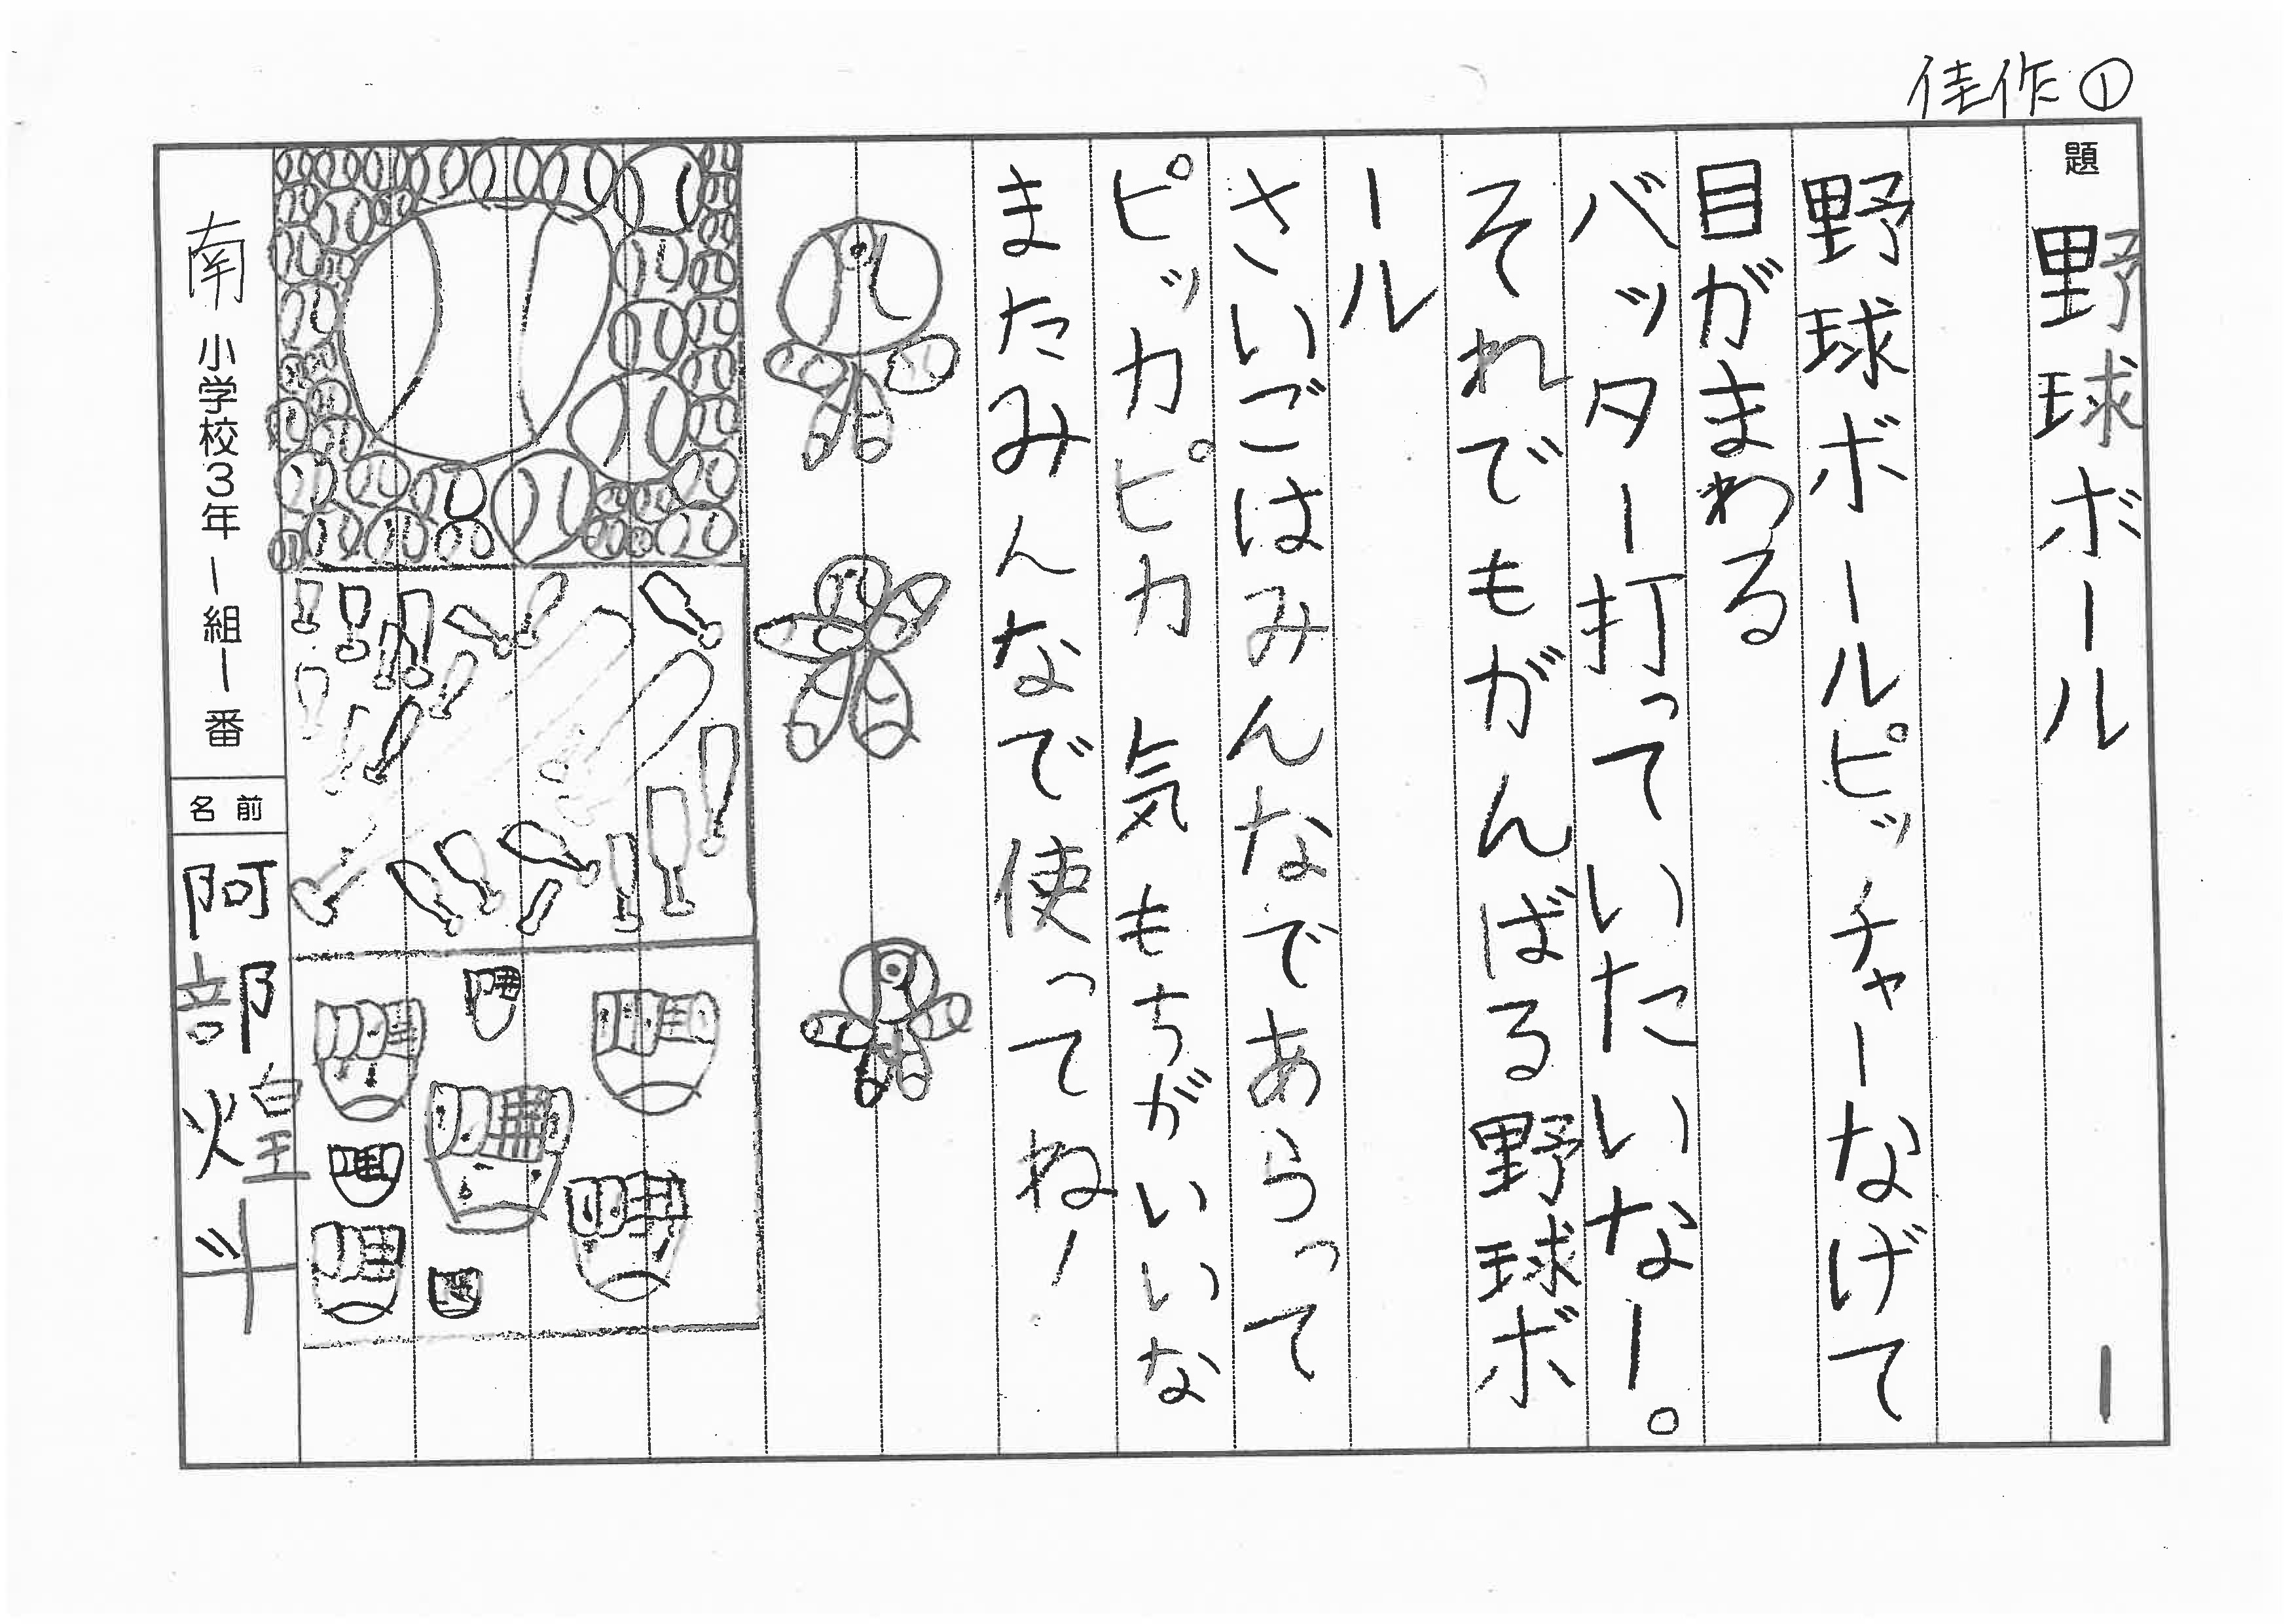 佳作①
題 野球ボール
野球ボールピッチャーなげて
目がまわる
バッター打っていたいなー。
それでもがんばる野球ボ
ール
さいごはみんなであらって
ピッカピカ気もちがいいな
またみんなで使ってね!
南小学校3年1組1番
名前 阿部煌斗